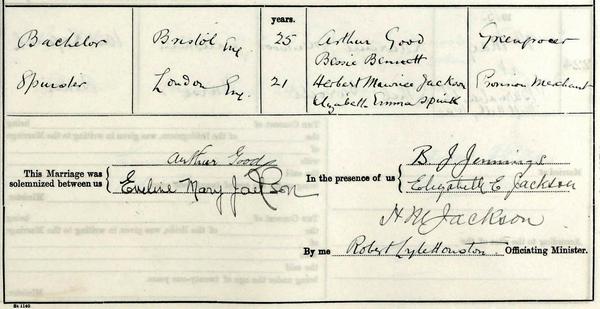 years.
Bachelor Bristol Eng. 25 Arthur Good Greengrocer
Bessie Bennett
Spinster London Eng. 21 Herbert Maurice Jackson Provision Merchant
Elizabeth Emma Spink
This Marriage was solemnized between us { Arthur Good
Eveline Mary Jackson
In the presence of us { B. J. Jennings
Elizabeth E Jackson
H M Jackson
By me Robert Lyle Houston Officiating Minister.